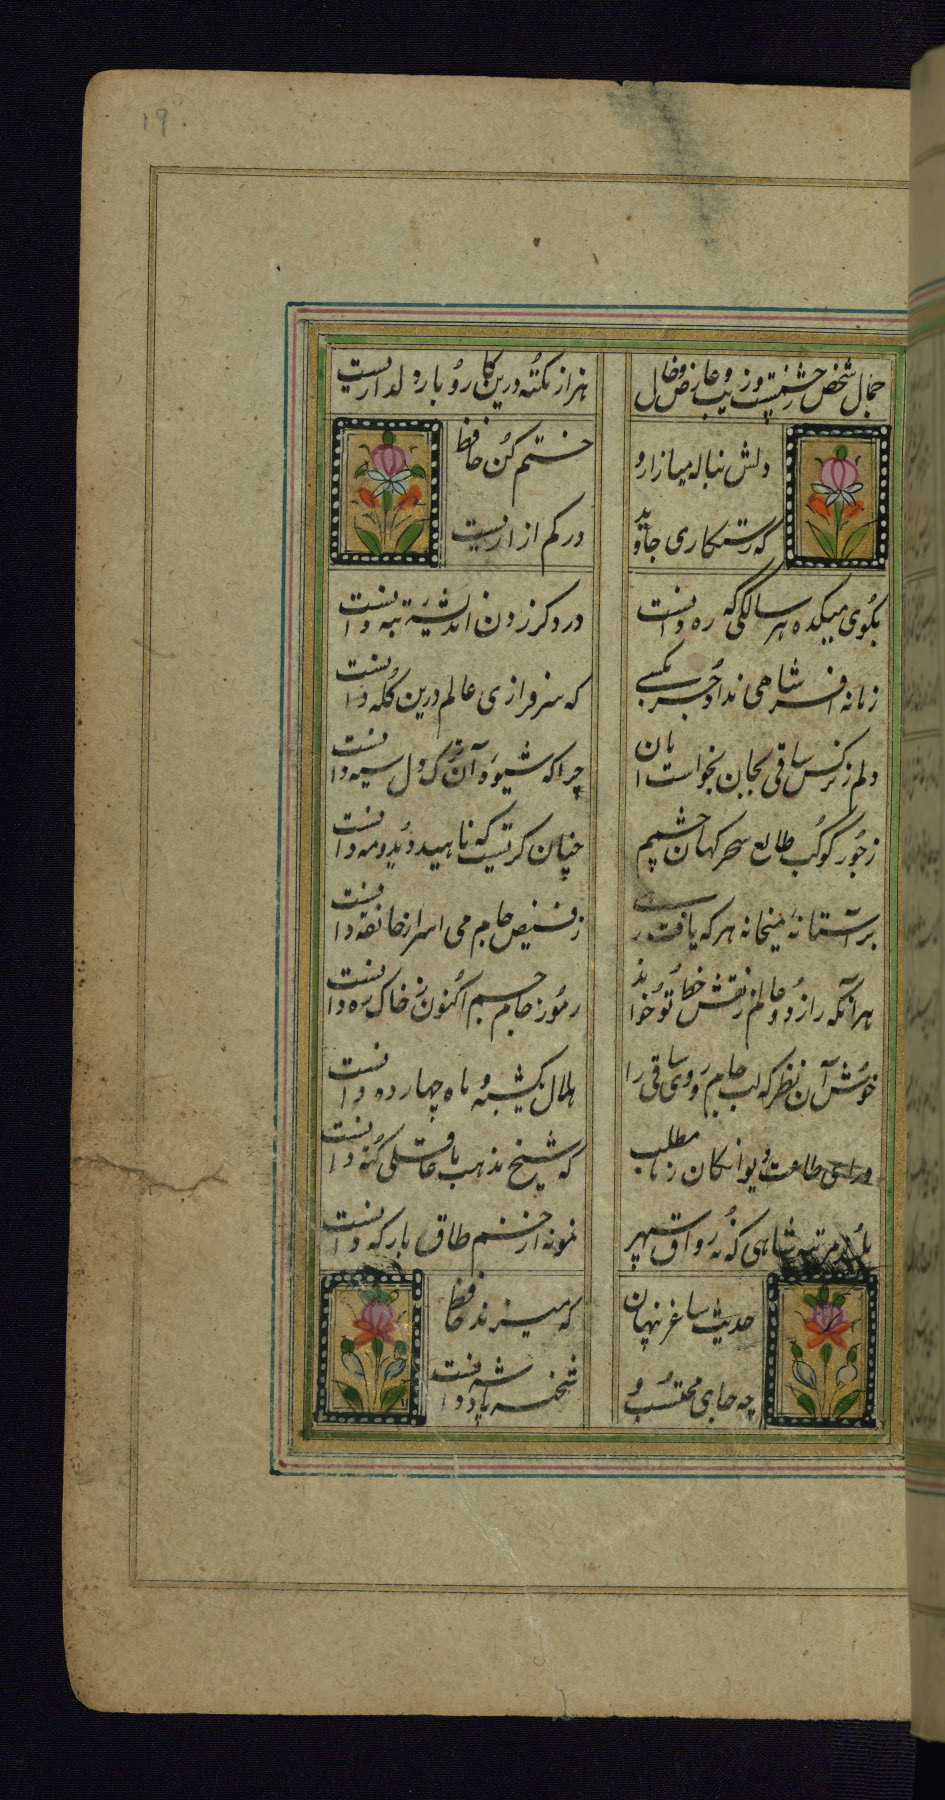 ۱۹
جمال شخص نه چشمست و زیب و عارض و خال
هزار نکته درین کار و بار دلداریست
دلش بناله میازار و
ختم کن حافظ
که رستگاری جاوید
در کم آزاریست
بکوی میکده هر سالکی که ره دانست
در دگر زدن اندیشهٔ تبه دانست
زمانه افسر شاهی نداد جز بکسی
که سرفرازی عالم درین کله دانست
دلم ز نرگس ساقی بجان نخواست امان
چرا که شیوه آن ترک دل سیه دانست
ز جور کوکب طالع سحرگهان چشمم
چنان گریست که ناهید دید و مه دانست
بر آستانهٔ میخانه هر که یافت رهی
ز فیض جام می اسرار خانقه دانست
هر آنکه راز دو عالم ز نقش خط تو خواند
رموز جام جم اکنون ز خاک ره دانست
خوش آن نظر که لب جام و روی ساقی را
هلال یکشبه و ماه چهارده دانست
ورای طاعت دیوانگان ز ما مطلب
که شیخ مذهب ما عاقلی گنه دانست
بلند مرتبه شاهی که نه رواق سپهر
نمونه از خم طاق بارگه دانست
حدیث ساغر پنهان
که میزند حافظ
چه جای محتسب و
شحنه پادشه دانست